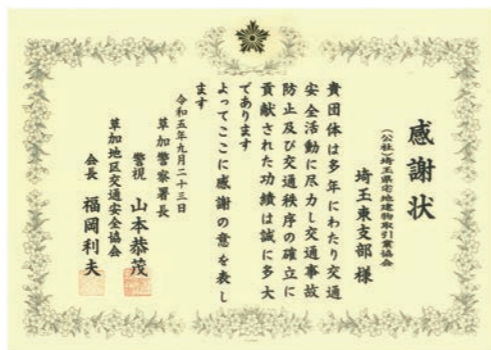 感謝状
(公社)埼玉県宅地建物取引業協会
埼玉東支部様
貴団体は多年にわたり交通
安全活動に尽力し交通事故
防止及び交通秩序の確立に
貢献された功績は誠に多大
であります
よってここに感謝の意を表し
ます
令和五年九月二十三日
草加警察署長
警視 山本恭茂
草加地区交通安全協会
会長 福岡利夫